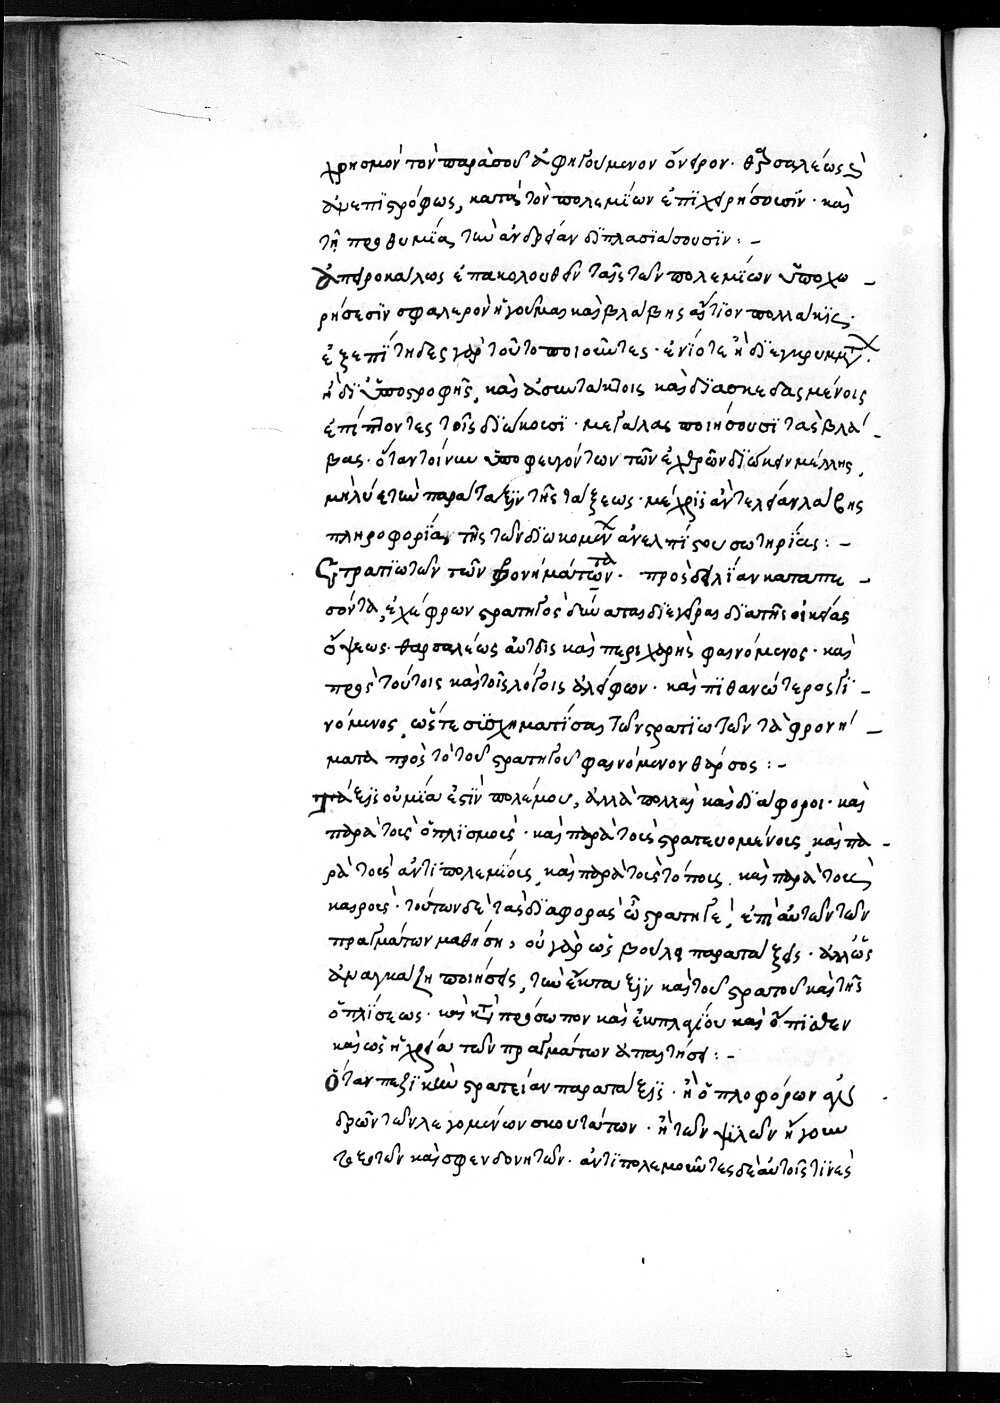 χρησμὸν τὸν παρὰ σοῦ ἀφηγούμενον ὄνειρον· θαρσαλέως καὶ
ἀνεπιστρόφως, κατὰ τῶν πολεμίων ἐπιχειρήσουσιν· καὶ
τῇ προθυμίᾳ τὴν ἀνδρείαν διπλασιάσουσιν:–
Ἀπειροκάλως ἐπακολουθεῖν ταῖς τῶν πολεμίων ὑποχω–
ρήσεσιν σφαλερὸν ἡγοῦμαι καὶ βλάβης αἴτιον πολλάκις·
ἐξεπίτηδες γὰρ τοῦτο ποιοῦντες· ἐνίοτε ἢ δι' ἐγκρυμμάτων
ἢ δι' ὑποστροφῆς, καὶ ἀσυντάκτοις καὶ διασκεδασμένοις
ἐπιπίπτοντες τοῖς διώκουσι· μεγάλας ποιήσουσι τὰς βλά–
βας· ὅταν τοίνυν ὑποφευγόντων τῶν ἐχθρῶν διώκειν μέλλῃς,
μὴ λύε τὴν παράταξιν τῆς τάξεως· μέχρις ἂν τελείαν λάβῃς
πληροφορίαν τῆς τῶν διωκομένων ἀνελπίστου σωτηρίας:–
Στρατιωτῶν τῶν φρονημάτων τὰ πρὸς δειλίαν καταπε–
σόντα, ἐχέφρων στρατηγὸς δύναται διεγεῖραι διὰ τῆς οἰκείας
ὄψεως· θαρσαλέως αὐτοῖς καὶ περιχαρὴς φαινόμενος· καὶ
πρὸς τούτοις καὶ τοῖς λόγοις ἀλείφων· καὶ πιθανώτερος γι–
νόμενος, ὥστε συσχηματίσαι τῶν στρατιωτῶν τὰ φρονή–
ματα πρὸς τὸ τοῦ στρατηγοῦ φαινόμενον θάρσος:–
τάξις οὐ μία ἐστὶν πολέμου, ἀλλὰ πολλαὶ καὶ διάφοροι· καὶ
παρὰ τοῖς ὁπλισμοῖς· καὶ παρὰ τοῖς στρατευομένοις, καὶ πα–
ρὰ τοῖς ἀντιπολεμίοις, καὶ παρὰ τοῖς τόποις, καὶ παρὰ τοῖς
καιροῖς· τούτων δὲ τὰς διαφορὰς ὦ στρατηγέ, ἐπ' αὐτῶν τῶν
πραγμάτων μαθήσῃ, οὐ γὰρ ὡς βούλει παρατάξεις· ἀλλ' ὡς
ἀναγκάζῃ ποιήσεις, τὴν ἔκταξιν καὶ τοῦ στρατοῦ καὶ τῆς
ὁπλίσεως· καὶ κατὰ πρόσωπον καὶ ἐκ πλαγίου καὶ ὄπισθεν
καὶ ὡς ἡ χρεία τῶν πραγμάτων ἀπαιτήσει:–
Ὅταν πεζικὴν στρατείαν παρατάξῃς· ἢ ὁπλοφόρων ἀν
δρῶν τῶν λεγομένων σκουτάτων· ἢ τῶν ψιλῶν ἤγουν
τοξοτῶν καὶ σφενδονητῶν· ἀντιπολεμοῦντες δὲ αὐτοῖς τινες